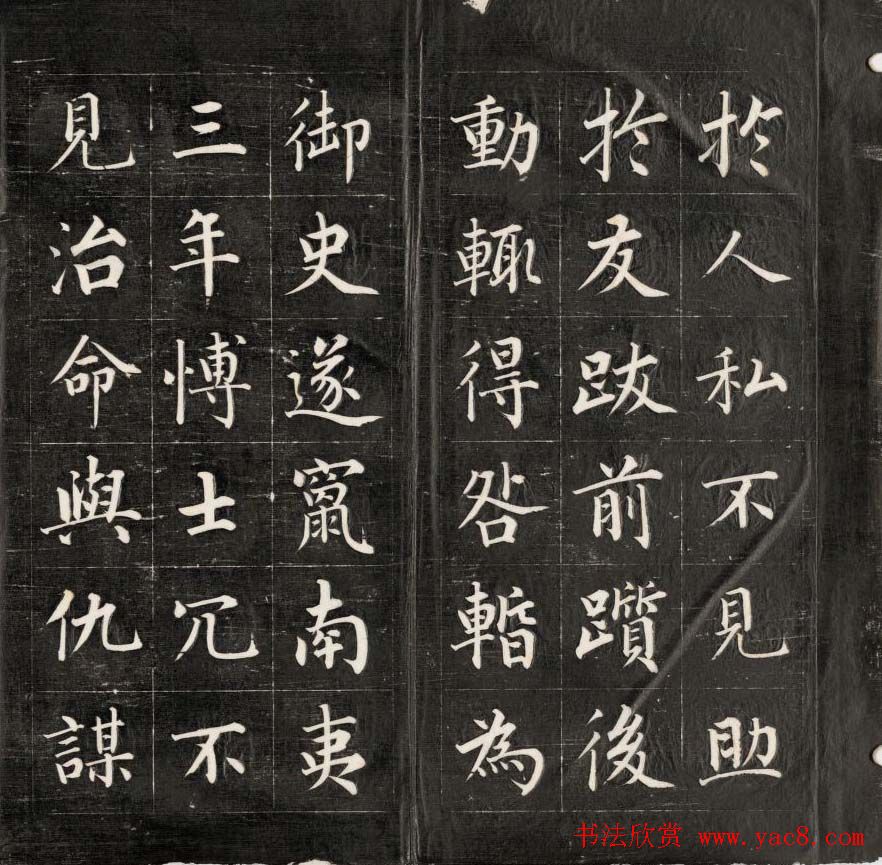 於人私不見助
於友跋前躓後
動輒得咎暫為
御史遂竄南夷
三年博士冗不
見治命與仇謀
书法欣赏 www.yac8.com